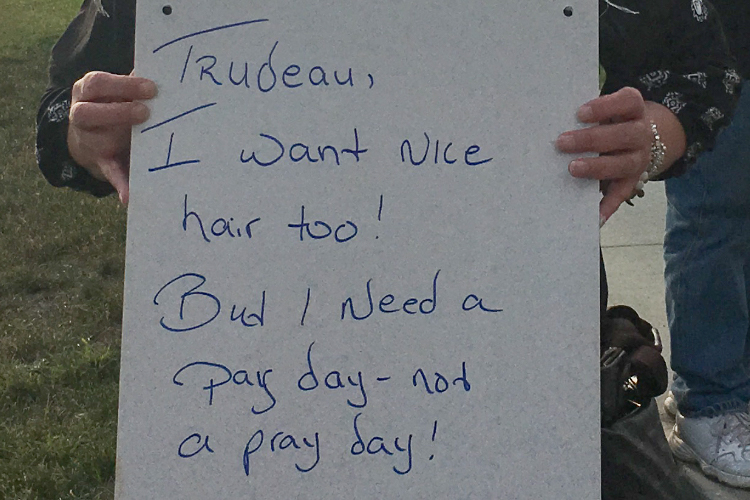 Trudeau,
I want Nice
hair too!
But I Need a
pay day - not
a pray day!